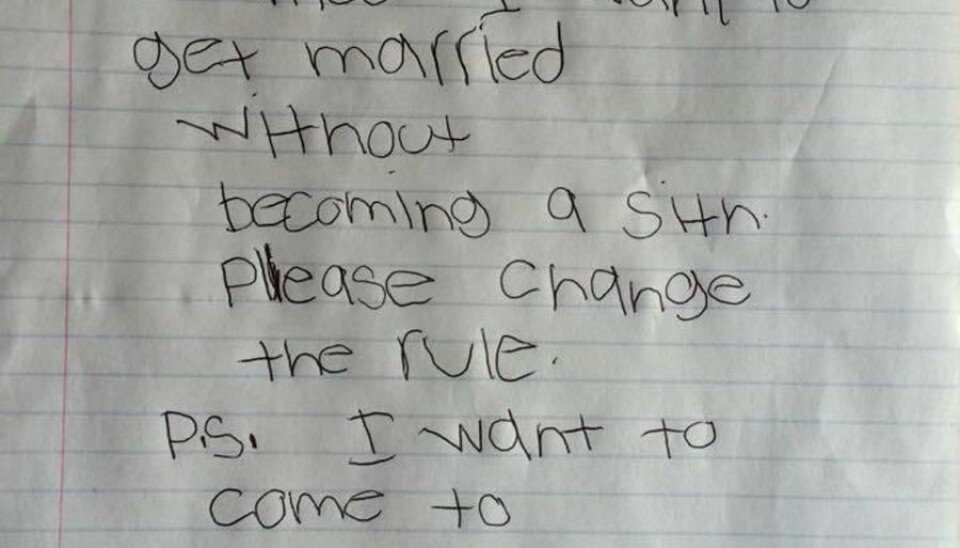 I want to
get married
without
becoming a sith.
Please change
the rule.
P.S. I want to
come to